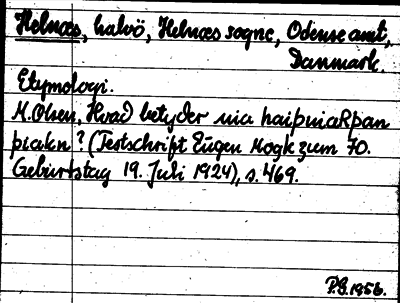 Helnæs, halvö, Helnæs sogne, Odense amt,
Danmark.
Etymologi.
M. Olsen, Hvad betyder uia haiþuiaRþan
þiakn? (Festschrift Eugen Mogk zum 70.
Geburtstag 19. Juli 1924), s. 469.
P.G. 1956.